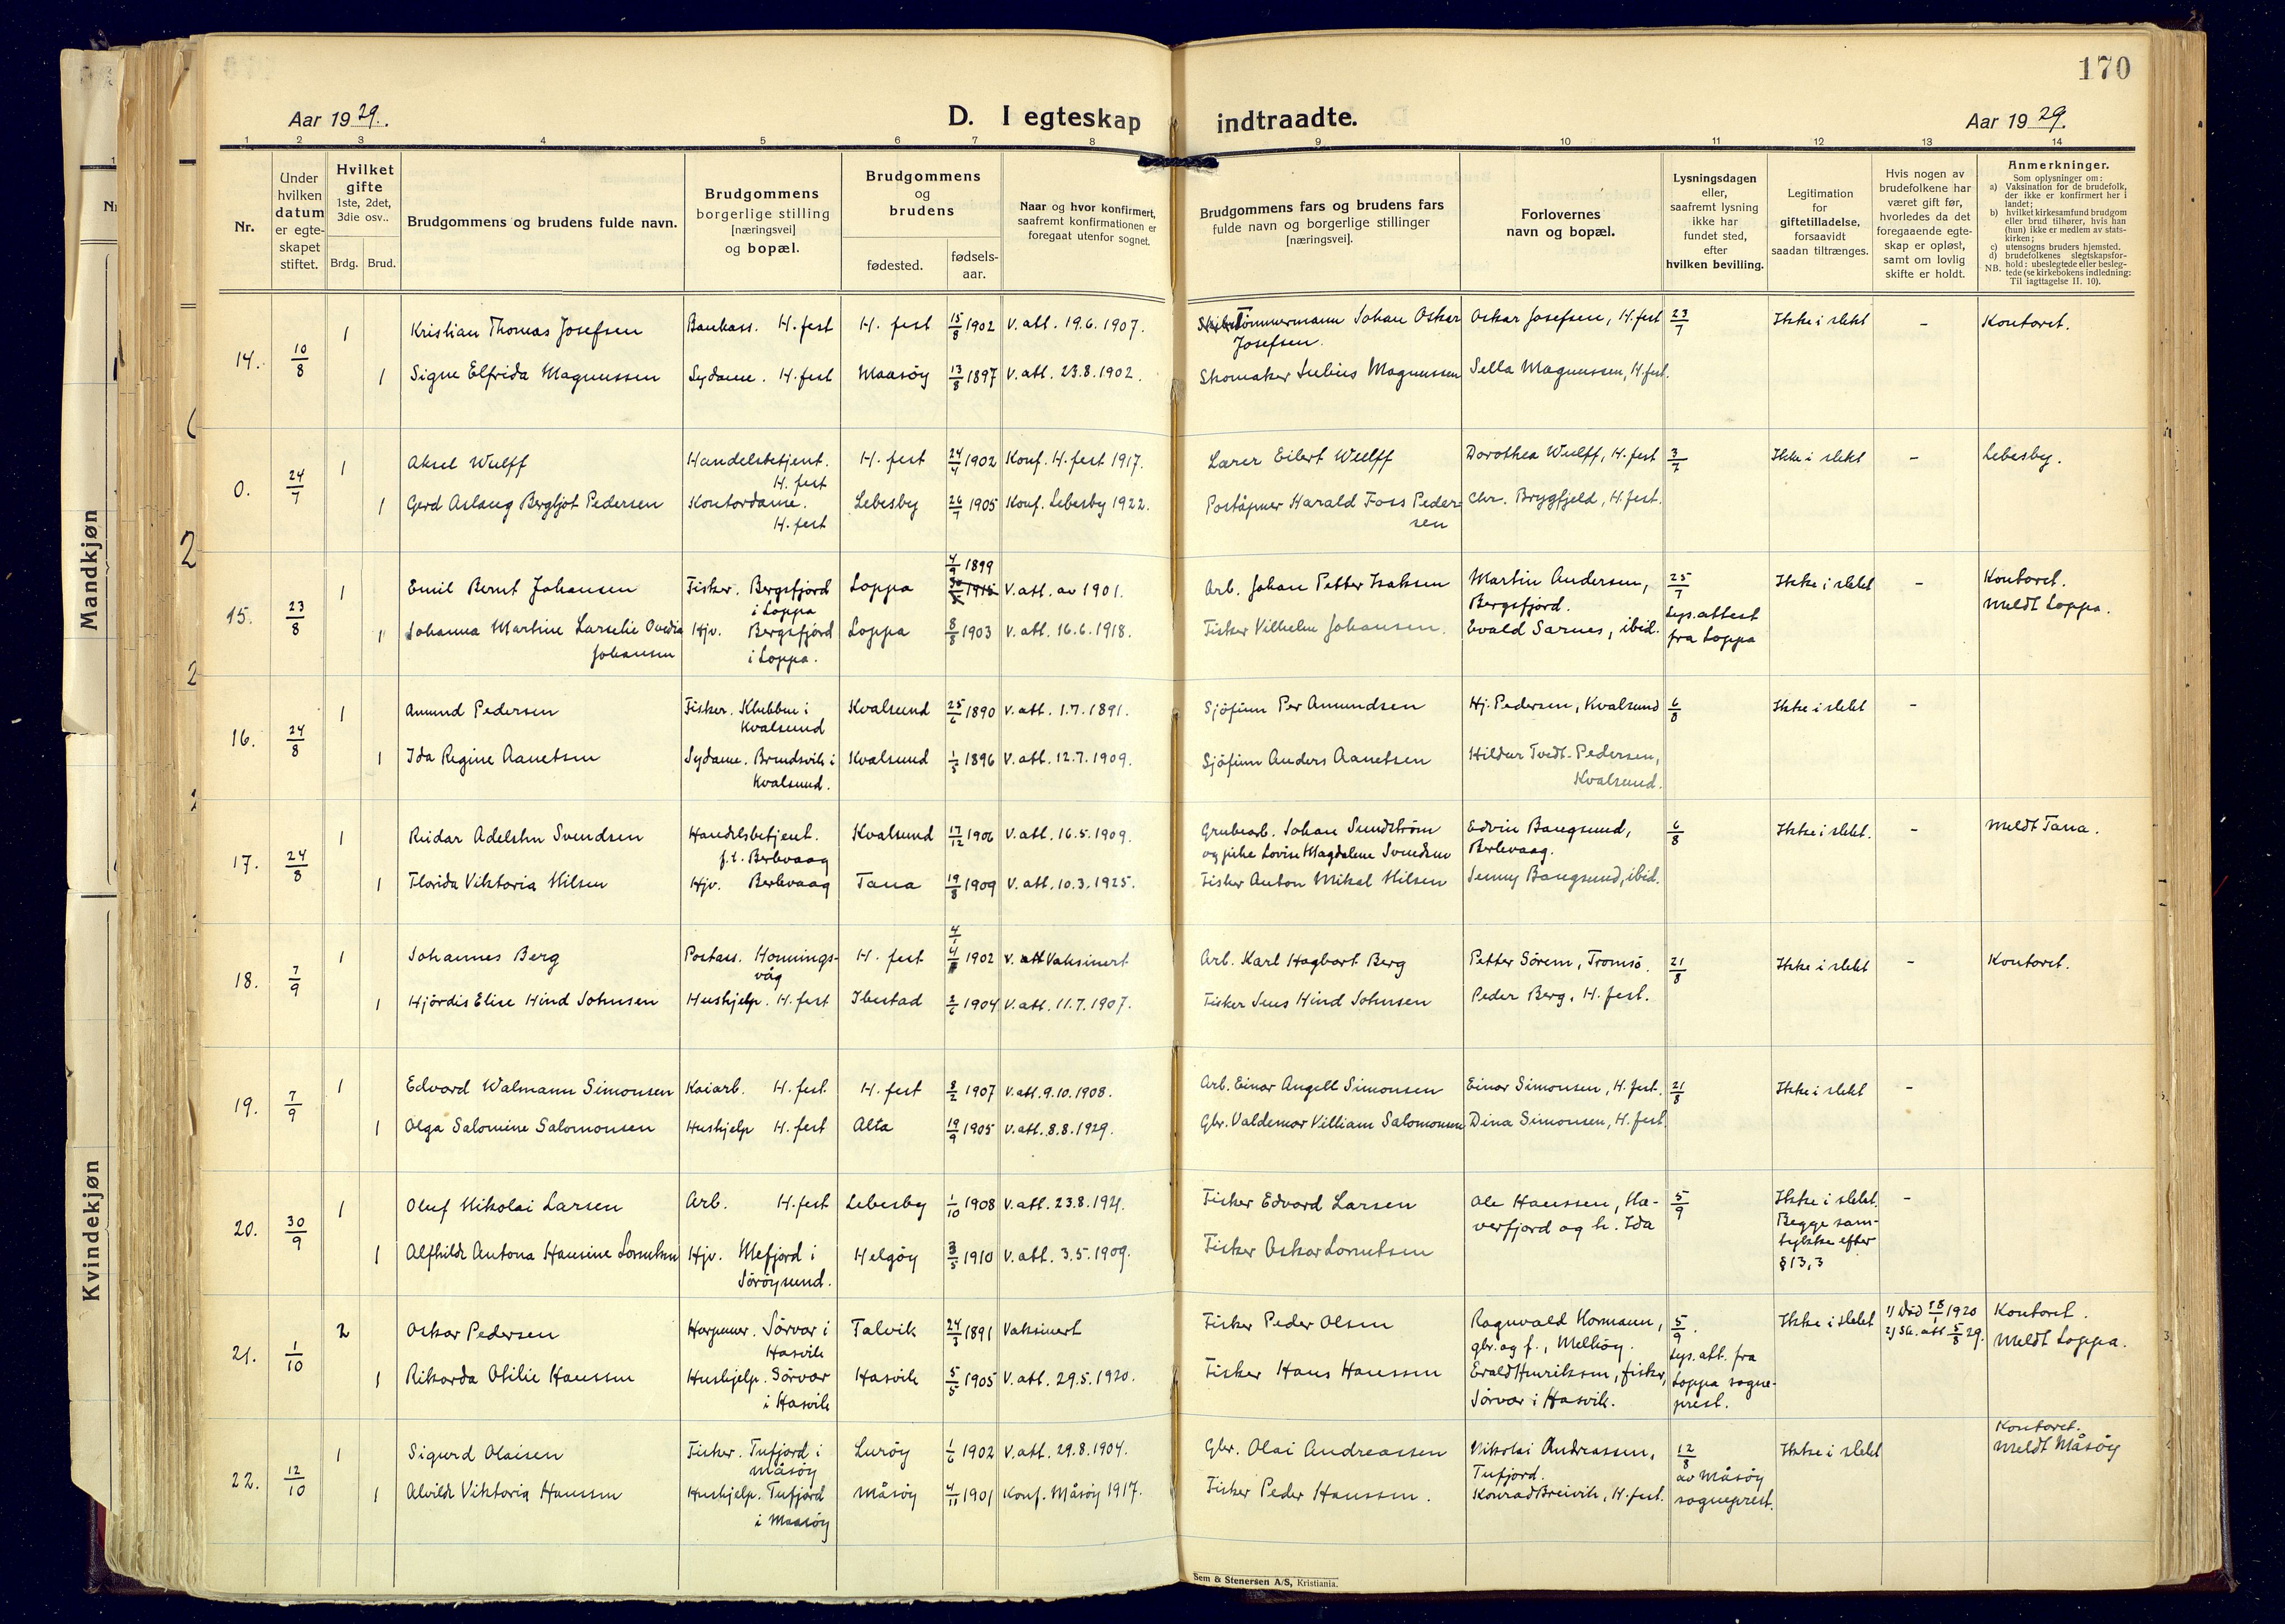 170
Aar 1929.
D. I egteskap indtraadte.
Aar 1929.
1 2 3 4 5 6 7 8 9 10 11 12 13 14
Nr.
Under
hvilken
datum
er egte-
skapet
stiftet.
Hvilket
gifte
1ste, 2det,
3die osv..
Brdg. Brud.
Brudgommens og brudens fulde navn.
Brudgommens
borgerlige stilling
[næringsvei]
og bopæl.
Brudgommens
og
brudens
fødested.
fødsels-
aar.
Naar og hvor konfirmert,
saafremt konfirmationen er
foregaat utenfor sognet.
Brudgommens fars og brudens fars
fulde navn og borgerlige stillinger
[næringsvei].
Forlovernes
navn og bopæl.
Lysningsdagen
eller,
saafremt lysning
ikke har
fundet sted,
efter
hvilken bevilling.
Legitimation
for
giftetilladelse,
forsaavidt
saadan tiltrænges.
Hvis nogen av
brudefolkene har
været gift før,
hvorledes da det
foregaaende egte-
skap er opløst,
samt om lovlig
skifte er holdt.
Anmerkninger.
Som oplysninger om:
a) Vaksination for de brudefolk,
der ikke er konfirmert her i
landet;
b) hvilket kirkesamfund brudgom
eller brud tilhører, hvis han
(hun) ikke er medlem av stats-
kirken;
c) utensogns bruders hjemsted.
d) brudefolkenes slegtskapsfor-
hold: ubeslegtede eller besleg-
NB. tede (se kirkebokens indledning:
Til iagttagelse II. 10).
Mandkjøn
Kvindekjøn
14. 10/8 1 Kristian Thomas Josefsen Bankass. H. fest H. fest 15/8 1902 V. att. 19.6.1907. Tømmermann Johan Oskar Oskar Josefsen, H. fest 23/7 Ikke i slekt - Kontoret.
Josefsen.
1 Signe Elfrida Magnussen Sydame. H. fest Maasöy 13/8 1897 V. att. 23.8.1902. Skomaker Julius Magnussen Sella Magnussen, H. fest.
0. 24/7 1 Aksel Wulff Handelsbetjent. H. fest 24/7 1902 Konf. H. fest 1917. Lærer Eilert Wulff Dorothea Wulff, H. fest 3/7 Ikke i slekt - Lebesby.
H. fest
1 Gerd Aslaug Bergljot Pedersen Kontordame. Lebesby 26/7 1905 Konf. Lebesby 1922. Poståpner Harald Foss Peder- Chr. Brygfjeld, H. fest.
H. fest sen
4/9 1899
15. 23/8 1 Emil Bernt Johansen Fisker. Bergsfjord Loppa V. att. av 1901. Arb. Johan Petter Isaksen Martin Andersen, 25/7 Ikke i slekt - Kontoret.
i Loppa Bergsfjord. Lys. attest Meldt Loppa.
1 Johanna Martine Larselie Ovedia Hjv. Bergsfjord Loppa 8/8 1903 V. att. 16.6.1918. Fisker Vilhelm Johansen. Evald Sarnes, ibid. fra Loppa
Johansen i Loppa.
16. 24/8 1 Amund Pedersen Fisker. Klubben i Kvalsund 25/6 1890 V. att. 1.7.1891. Sjöfinn Per Amundsen Hj. Pedersen, Kvalsund 6/8 Ikke i slekt -
Kvalsund
1 Ida Regine Aanetsen Sydame. Brendsvik i Kvalsund 1/5 1896 V. att. 12.7.1909. Sjöfinn Anders Aanetsen Hildur Tvedt-Pedersen,
Kvalsund. Kvalsund.
17. 24/8 1 Reidar Adelsten Svendsen Handelsbetjent. Kvalsund 17/12 1906 V. att. 16.5.1909. Grubearb. Johan Sundström Edvin Bangsund, 6/8 Ikke i slekt. - Meldt Tana.
f.t. Berlevaag og pike Lovise Magdalene Svendsen Berlevaag.
1 Florida Viktoria Nilsen Hjv. Berlevaag Tana 19/8 1909 V. att. 10.3.1925. Fisker Anton Mikal Nilsen Jenny Bangsund, ibid.
18. 7/9 1 Johannes Berg Postass. Honnings- H. fest 4/1 1902 V. att Vaksinert Arb. Karl Hagbart Berg Petter Sörem, Tromsö. 21/8 Ikke i slekt - Kontoret.
våg
1 Hjördis Elise Hind Johnsen Hushjelp. H. fest Ibestad 2/6 1904 V. att. 11.7.1907. Fisker Jens Hind Johnsen Peder Berg, H. fest.
19. 7/9 1 Edvard Walmann Simonsen Kaiarb. H. fest. H. fest 8/2 1907 V. att. 9.10.1908. Arb. Einar Angell Simonsen Einar Simonsen, H. fest. 21/8 Ikke i slekt -
1 Olga Salomine Salomonsen Hushjelp H. fest Alta 19/9 1905 V. att. 8.8.1929. Gbr. Valdemar Villiam Salomonsen Dina Simonsen, H. fest.
20. 30/9 1 Oluf Nikolai Larsen Arb. H. fest Lebesby 1/10 1908 V. att. 23.8.1921. Fisker Edvard Larsen Ole Hanssen, Hæ- 5/9 Ikke i slekt. -
verfjord og h. Ida Begge sam-
1 Alfhild Antona Hansine Lorentsen Hjv. Mefjord i Helgöy 3/5 1910 V. att. 3.5.1909. Fisker Oskar Lorentsen tykke efter
Söröysund. § 13,3
21. 1/10 2 Oskar Pedersen Sörvær i Talvik 24/3 1891 Vaksinert Fisker Peder Olsen Ragnvald Hormann, 5/9. Ikke i slekt 1) Död 18/1 1920 Kontoret.
Hasvik gbr. og f., Melköy. Lys. att. fra 2) Sk. att 5/8 29. Meldt Loppa.
1 Rikarda Otilie Hanssen Hushjelp. Sörvær Hasvik 5/5 1905 V. att. 29.5.1920. Fisker Hans Hanssen Evald Henriksen, fisker, Loppa sogne-
i Hasvik Sörvær i Hasvik. prest.
Kontoret.
22. 12/10 1 Sigurd Olaisen Fisker. Tufjord i Luröy 1/6 1902 V. att. 29.8.1904. Gbr. Olai Andreassen Nikolai Andreassen, 12/8 Ikke i slekt Meldt Måsöy
Måsöy Tufjord. av Måsöy
1 Alvilde Viktoria Hanssen Hushjelp. Tufjord Måsöy 4/11 1901 Konf. Måsöy 1917. Fisker Peder Hanssen. Konrad Breivik, H. fest. sogneprest.
i Maasöy
Sem & Stenersen A/S, Kristiania.